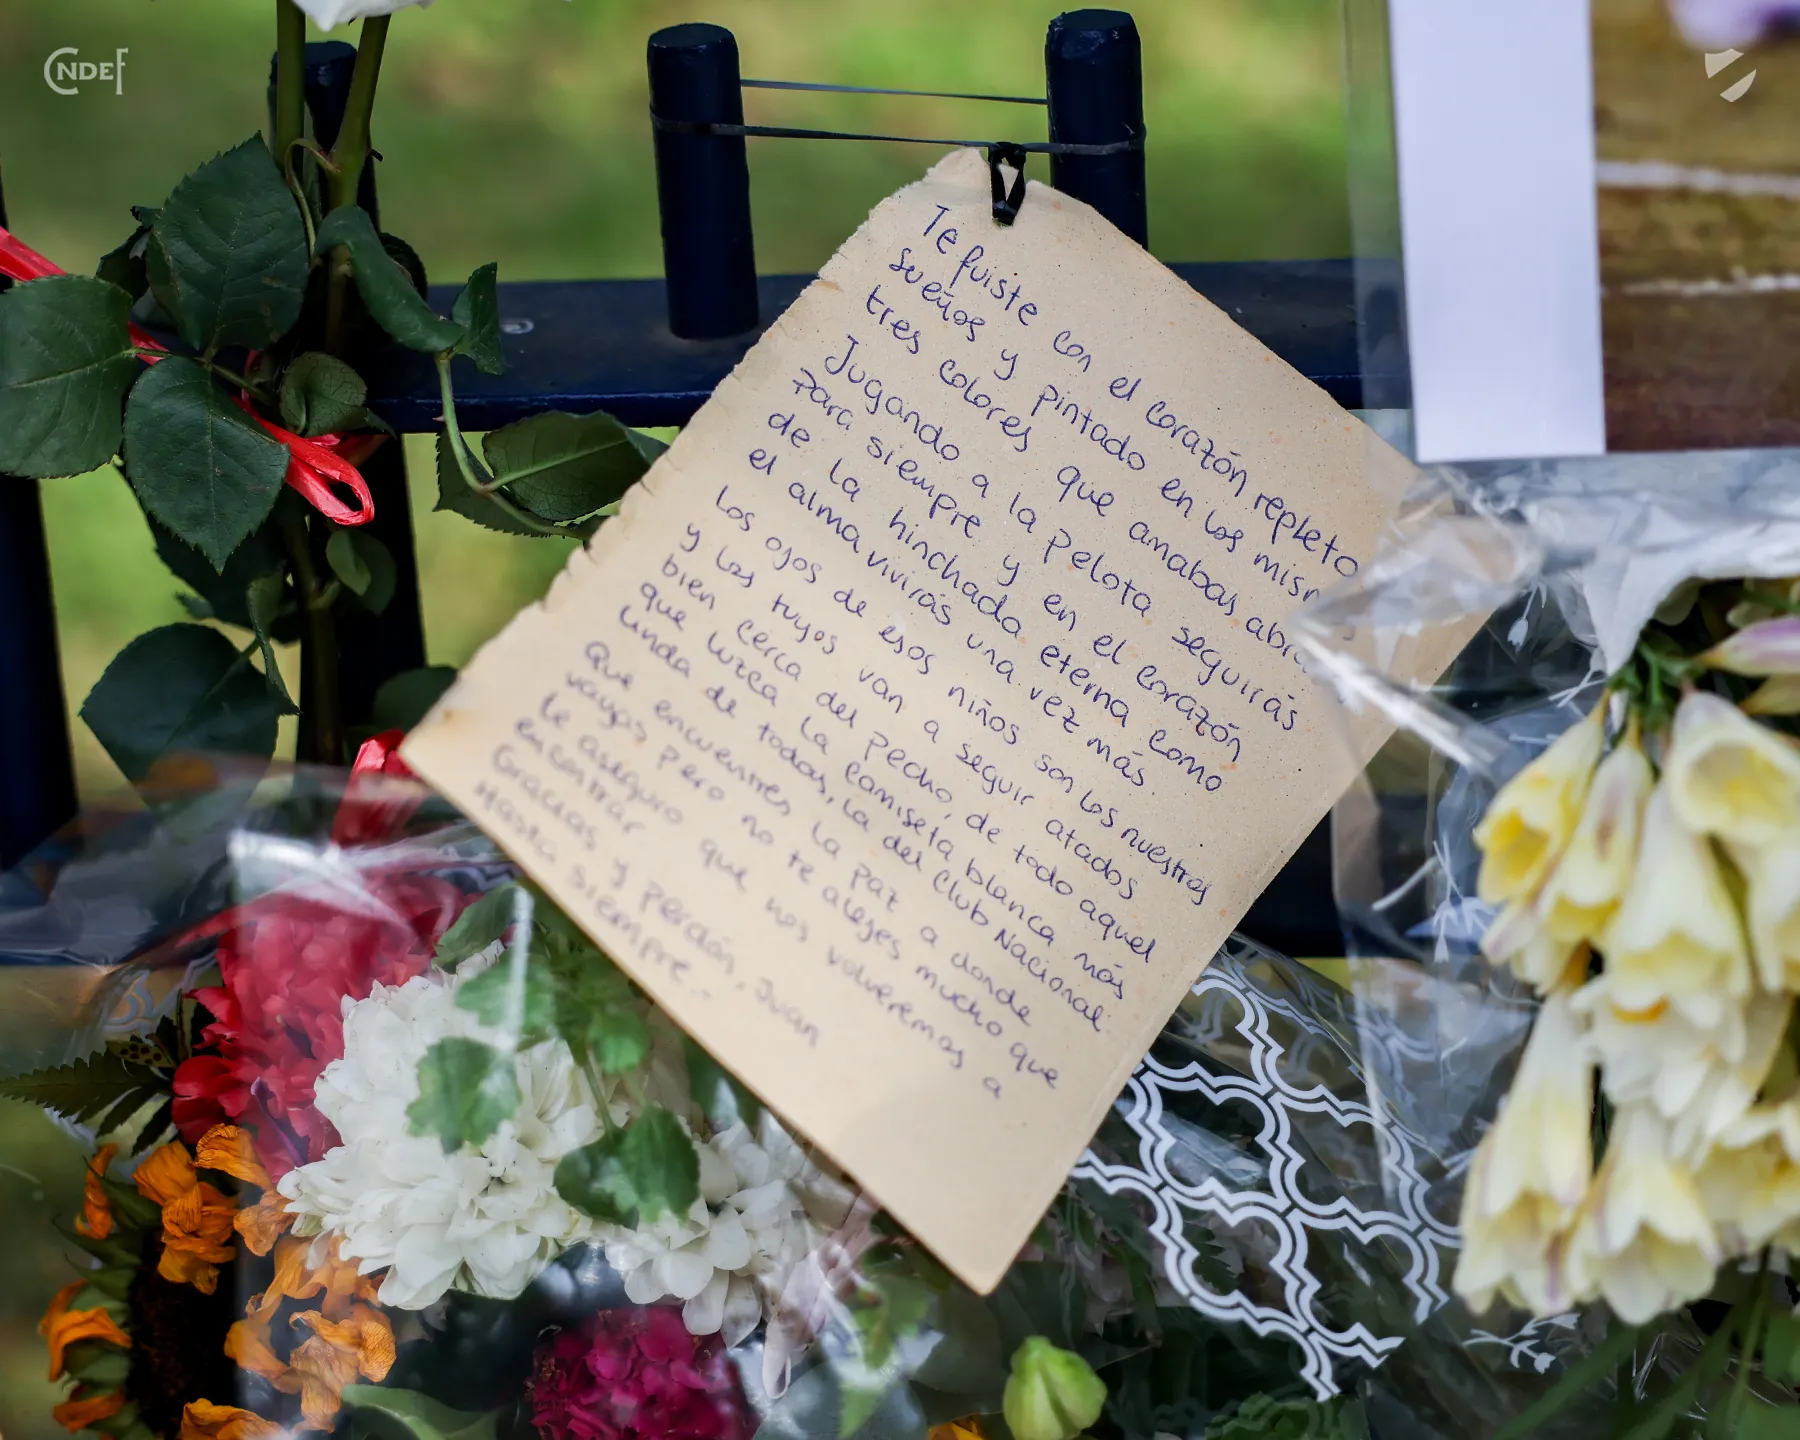 CNDEF
Te fuiste con el corazón repleto
sueños y pintado en los
tres colores que amabas
Jugando a la pelota seguirás
para siempre y en el corazón
de la hinchada eterna como
el alma vivirás una vez más.
Los ojos de esos niños son los nuestros
y los tuyos van a seguir atados
bien cerca del pecho, de todo aquel
que luzca la camiseta blanca más
linda de todas, la del Club Nacional
Que encuentres la paz a donde
vayas pero no te alejes mucho que
te aseguro que nos volveremos a
encontrar
Gracias y perdón, Juan
Hasta siempre.-